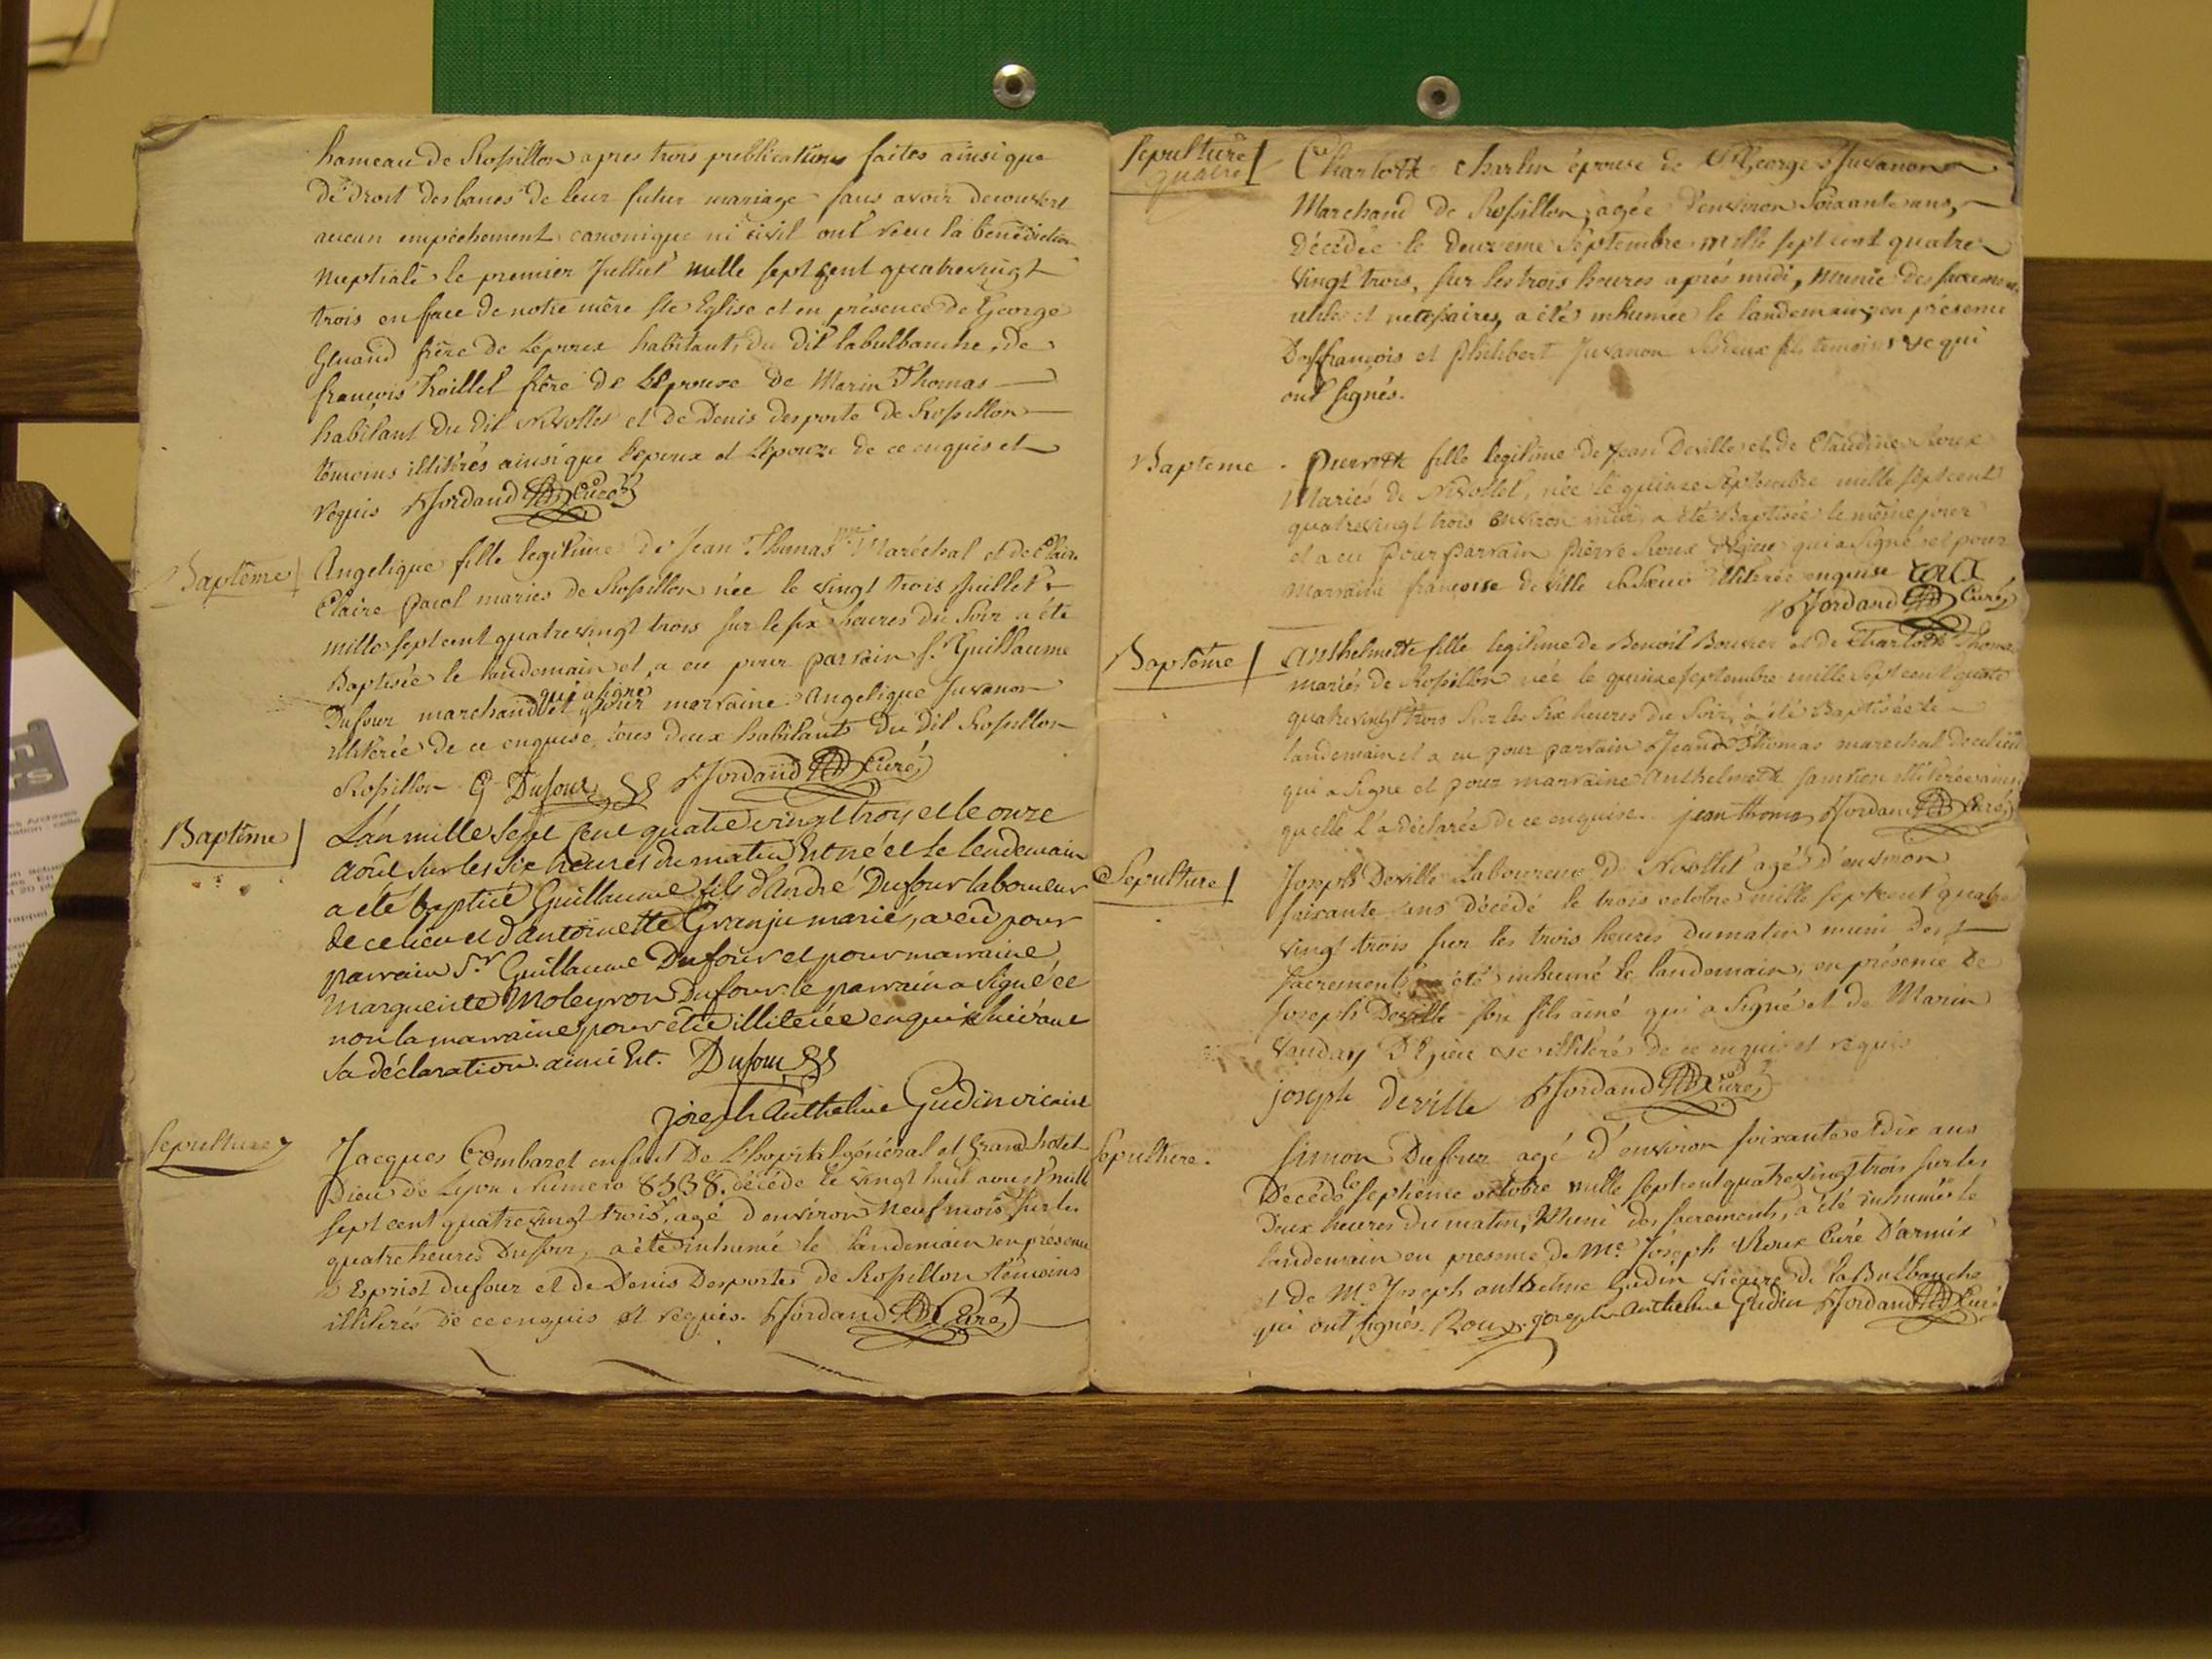 hameau de Rossillon apres trois publications faites ainsi que
de droit des bancs de leur futur mariage sans avoir decouvert
aucun empêchement canonique ni civil ont reçu la bénédiction
nuptiale le premier Juillet mille sept cent quatrevingt
trois en face de notre mère ste Eglise et en présence de George
frère de Lepoux habitants du dit labulbanche, de
françois frère de Lépouse de Marin Thomas
habitant du dit Nivollet et de Denis desporte de Rossillon
témoins illitérés ainsi que lepoux et Lepouze de ce enquis et
requis Jordand Curé
Baptême
Angelique fille legitime de Jean Thomas Maréchal et de Clair
Claire pacol mariés de Rossillon née le vingt trois Juillet
mille sept cent quatre vingt trois sur le six heures du soir a été
Baptisée le landemain et a eu pour parrain Sr Guillaume
qui a signé
Dufour marchand et pour marraine Angelique Juvanon
illitérée de ce enquise, tous deux habitants du dit Rossillon
Rossillon G Dufour Jordand Curé
Baptême
L'an mille sept cent quatre vingt troy et le onze
août sur les six heures du matin Est né et le lendemain
a été baptisé Guillaume fils d'André Dufour laboureur
de ce lieu et d'antoinette Granju mariés, a eû pour
parrain Sr Guillaume Dufour et pour marraine
Marguerite Moleyron Dufour le parrain a signé et
non la marraine pour être illitérée enquise suivant
sa déclaration. ainsi Est. Dufour
joseph Anthelme Gudin vicaire
sepulture
Jacques Combaret enfant de L'hopital général et Grand hotel
Dieu de Lyon Numero 8538. décédé le vingt huit aoust mille
sept cent quatrevingt trois, agé d'environ neuf mois sur les
quatre heures du soir, a été inhumé le landemain en présence
d'Esprist dufour et de Denis Desportes de Rossillon témoins
illitérés de ce enquis et requis. Jordand Curé
sepulture
Charlotte Charlin épouse de Sr George Juvanon
Marchand de Rossillon, agée d'environ soixante ans,
décédée le deuxieme septembre mille sept cent quatre
vingt trois, sur les trois heures après midi, munie des sacements
utiles et necessaires, a été inhumée le landemain, en présence
françois et Philibert Juvanon ses deux fils temoins qui
ont signés.
Bapteme
Pierrette fille legitime de Jean Deville et de Claudine Roux
Mariés de Nivollet, née le quinze septembre mille sept cent
quatrevingt trois environ midi, a été Baptisée le même jour
et a eu pour parrain Pierre Roux qui a signé et pour
marraine françoise deville illiterée enquise roux
Jordand Curé
Baptême
Anthelmette fille legitime de Benoit Bouvier et de Charlotte Thomas
mariés de Rossillon née le quinze septembre mille sept cent quatre
quatrevingt trois sur les six heures du soir, a été Baptisée le
landemain et a eu pour parrain Jean Thomas marechal de ce lieu
qui a signé et pour marraine Anthelmette illiterée ainsi
quelle l'a déclarée de ce enquise. jean thomas Jordand Curé
Sepulture
Joseph Deville Laboureur de Nivollet agé d'environ
soixante ans décédé le trois octobre mille sept cent quatre
vingt trois sur les trois heures du matin muni des
sacrements a été inhumé le landemain, en présence de
Joseph Deville son fils ainé qui a signé et de Marin
Vauday illitéré de ce enquis et requis
joseph deville Jordand Curé
Sepulture.
Simon Dufour agé d'environ soixante et dix ans
Decédé le septieme octobre mille sept cent quatre vingt trois sur les
deux heures du matin, Muni des sacrements, a été inhumés le
landemain en presence de Me Joseph Roux Curé D'armix
et de Me Joseph anthelme Gudin vicaire de la Bulbanche
qui ont signés. Roux. joseph Anthelme Gudin Jordand Curé